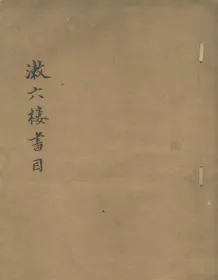 漱六樓書目